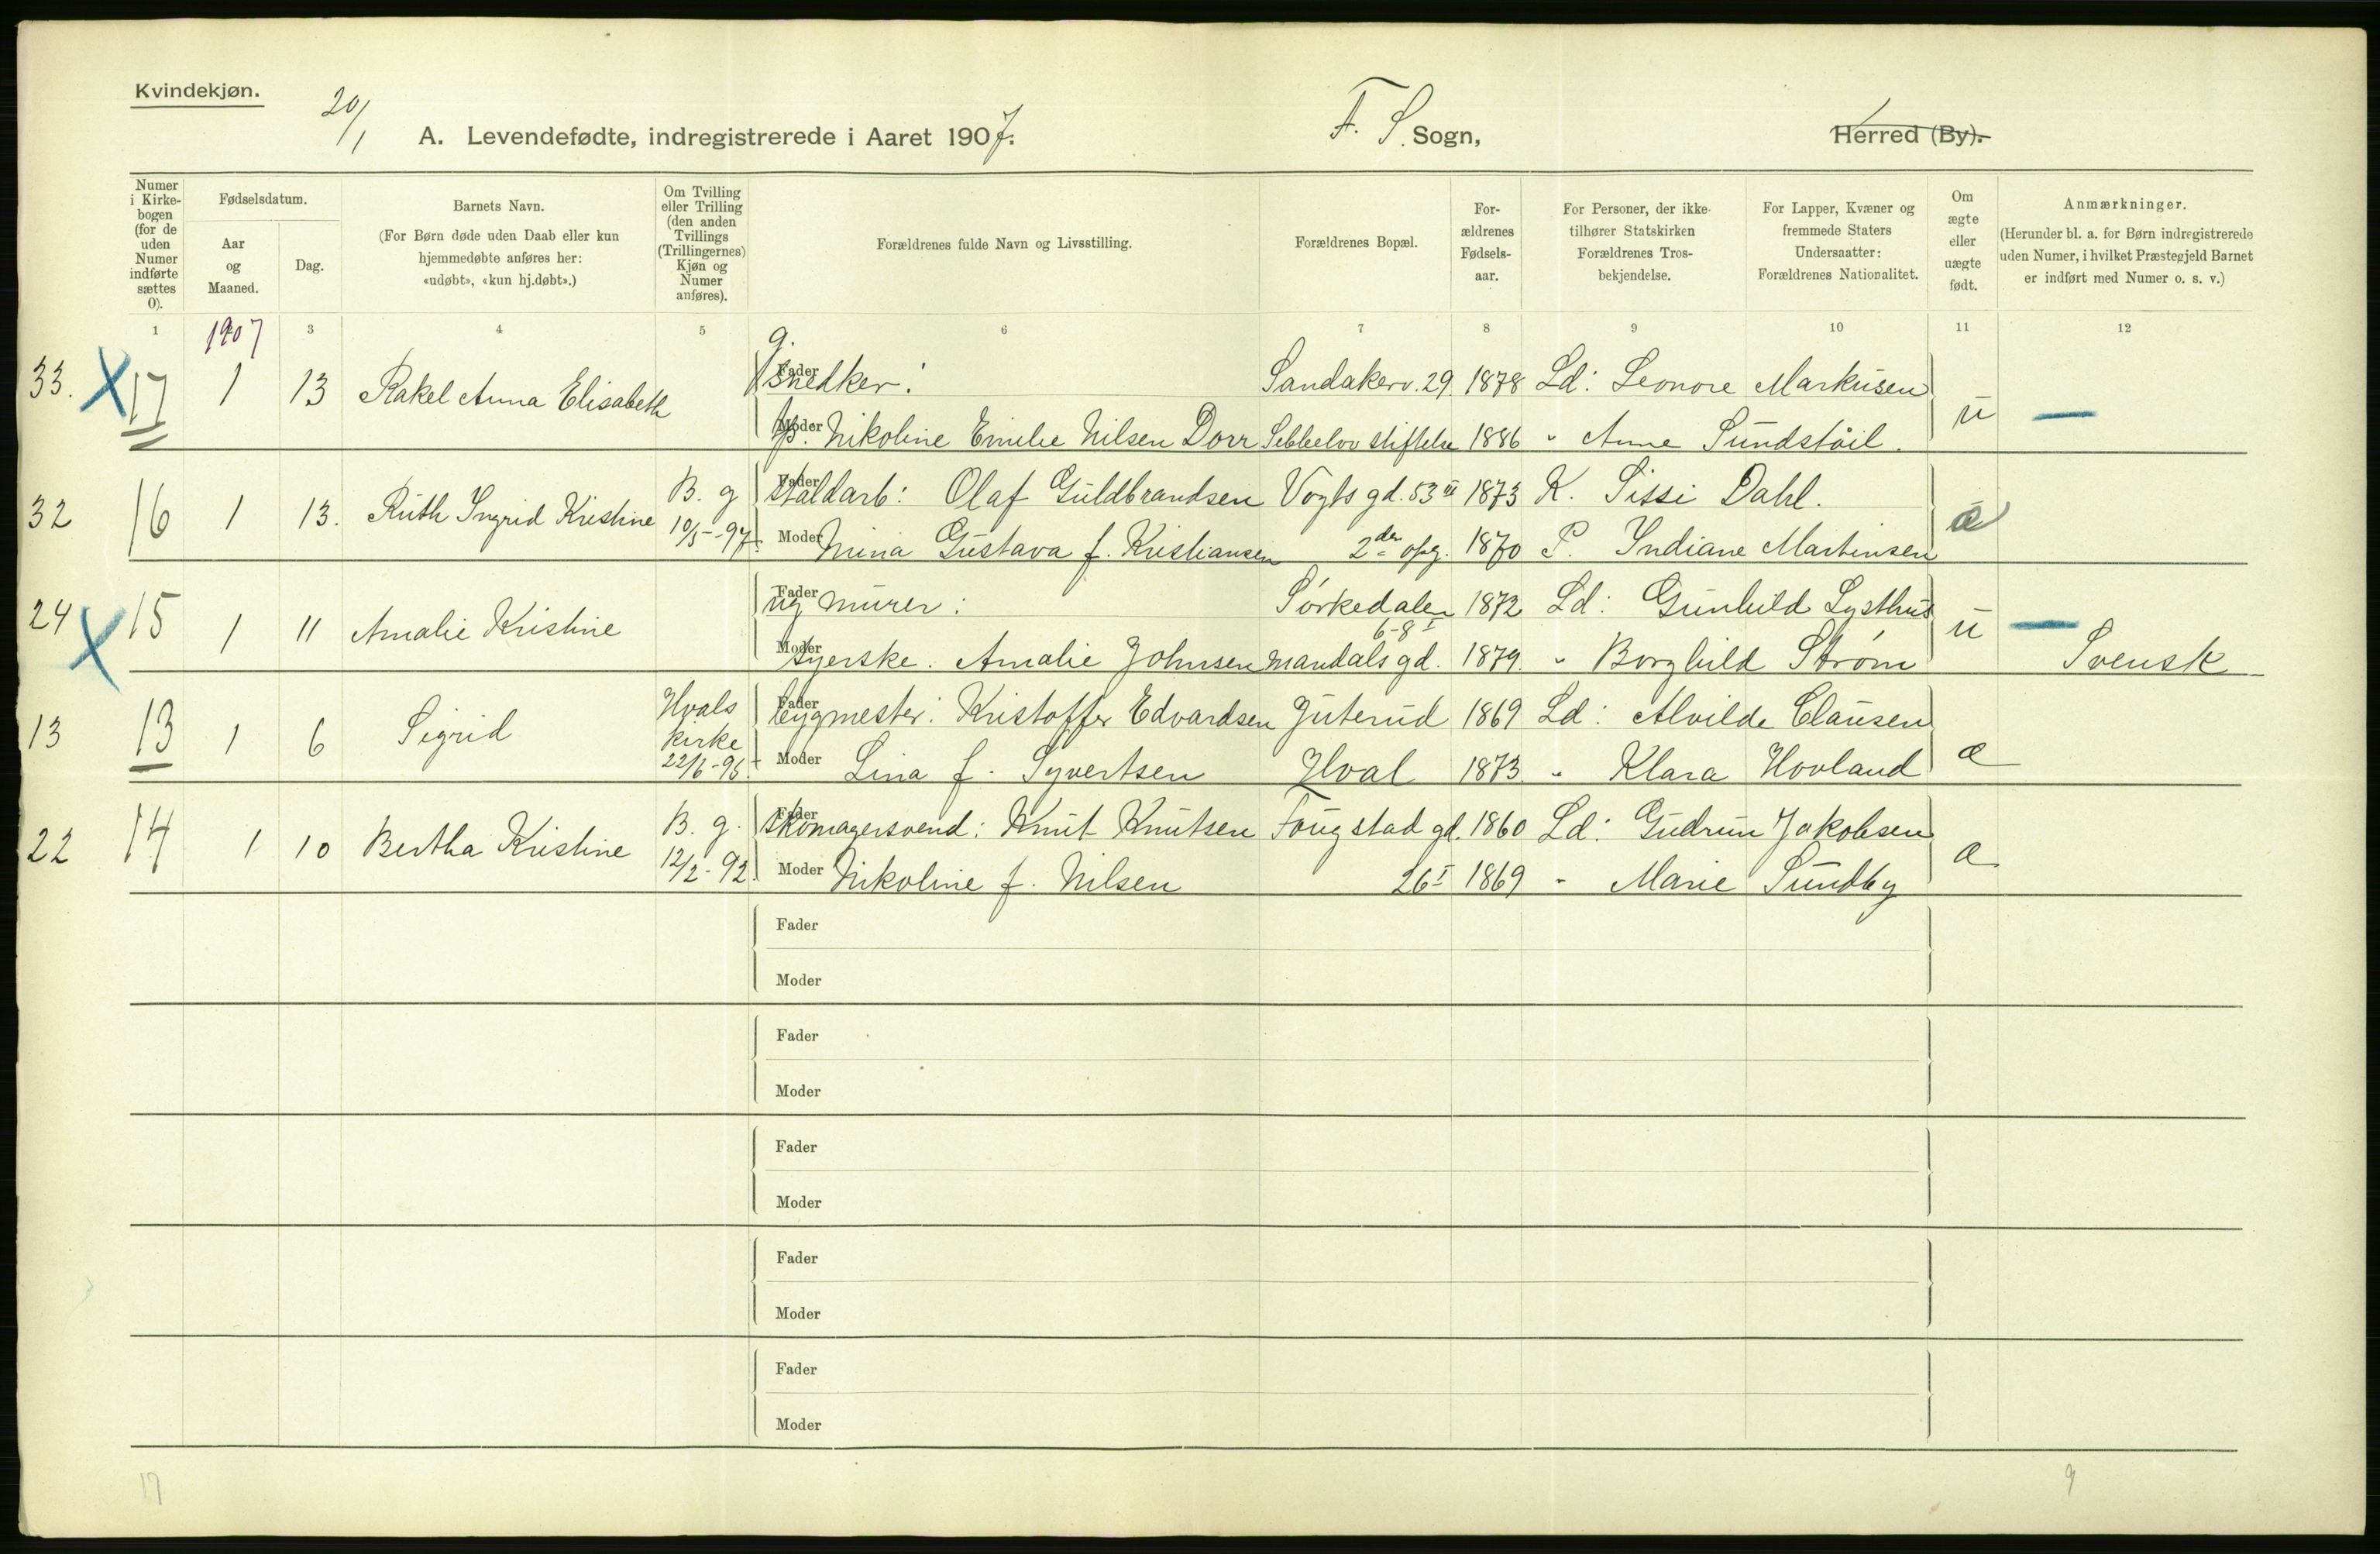 Kvindekjøn.
20/1
A. Levendefødte, indregistrerede i Aaret 1907.
F. S. Sogn,
Herred (By).
Numer i Kirkebogen (for de uden Numer indførte sættes 0).
Fødselsdatum.
Aar og Maaned.
Dag.
Barnets Navn.
(For Børn døde uden Daab eller kun hjemmedøbte anføres her: «udøbt», «kun hj.døbt».)
Om Tvilling eller Trilling (den anden Tvillings (Trillingernes) Kjøn og Numer anføres).
Forældrenes fulde Navn og Livsstilling.
Forældrenes Bopæl.
Forældrenes Fødselsaar.
For Personer, der ikke tilhører Statskirken Forældrenes Trosbekjendelse.
For Lapper, Kvæner og fremmede Staters Undersaatter: Forældrenes Nationalitet.
Om ægte eller uægte født.
Anmærkninger.
(Herunder bl. a. for Børn indregistrerede uden Numer, i hvilket Præstegjeld Barnet er indført med Numer o. s. v.)
1 1907 3 4 5 6 7 8 9 10 11 12
33. X 17 1 13 Rakel Anna Elisabeth
g. Fader snedker: Sandakerv. 29. 1878 Ld: Leonore Markusen
Moder tp. Nikoline Emilie Nilsen Dorr Sebbelov stiftelse 1886 " Anna Sundståil. u —
32 16 1 13. Ruth Ingrid Kristine B. g 10/5-97.
Fader staldarb: Olaf Guldbrandsen Vogts gd. 53 III 1873 K. Sissi Dahl.
Moder Mina Gustava f. Kristiansen 2den opg. 1870 P. Indiane Martinsen æ
24 X 15 1 11 Amalie Kristine
Fader ug murer: Sørkedalen 1872 Ld: Gunhild Lysthus
6-8 I
Moder syerske. Amalie Johnsen Mandals gd. 1879. " Borghild Strøm u — Svensk
13 13 1 6 Sigrid Hvals kirke 22/6-95.
Fader bygmester: Kristoffer Edvardsen Juterud 1869 Ld: Alvilde Clausen
Moder Lina f. Syvertsen Hval 1873. " Klara Hovland æ
22 14 1 10 Bertha Kristine B. g. 12/2-92.
Fader skomagersvend: Knut Knutsen Fougstad gd. 1860 Ld: Gudrun Jakobsen
Moder Nikoline f. Nilsen 26 I 1869 " Marie Sundby æ
Fader
Moder
Fader
Moder
Fader
Moder
Fader
Moder
Fader
Moder
17 9